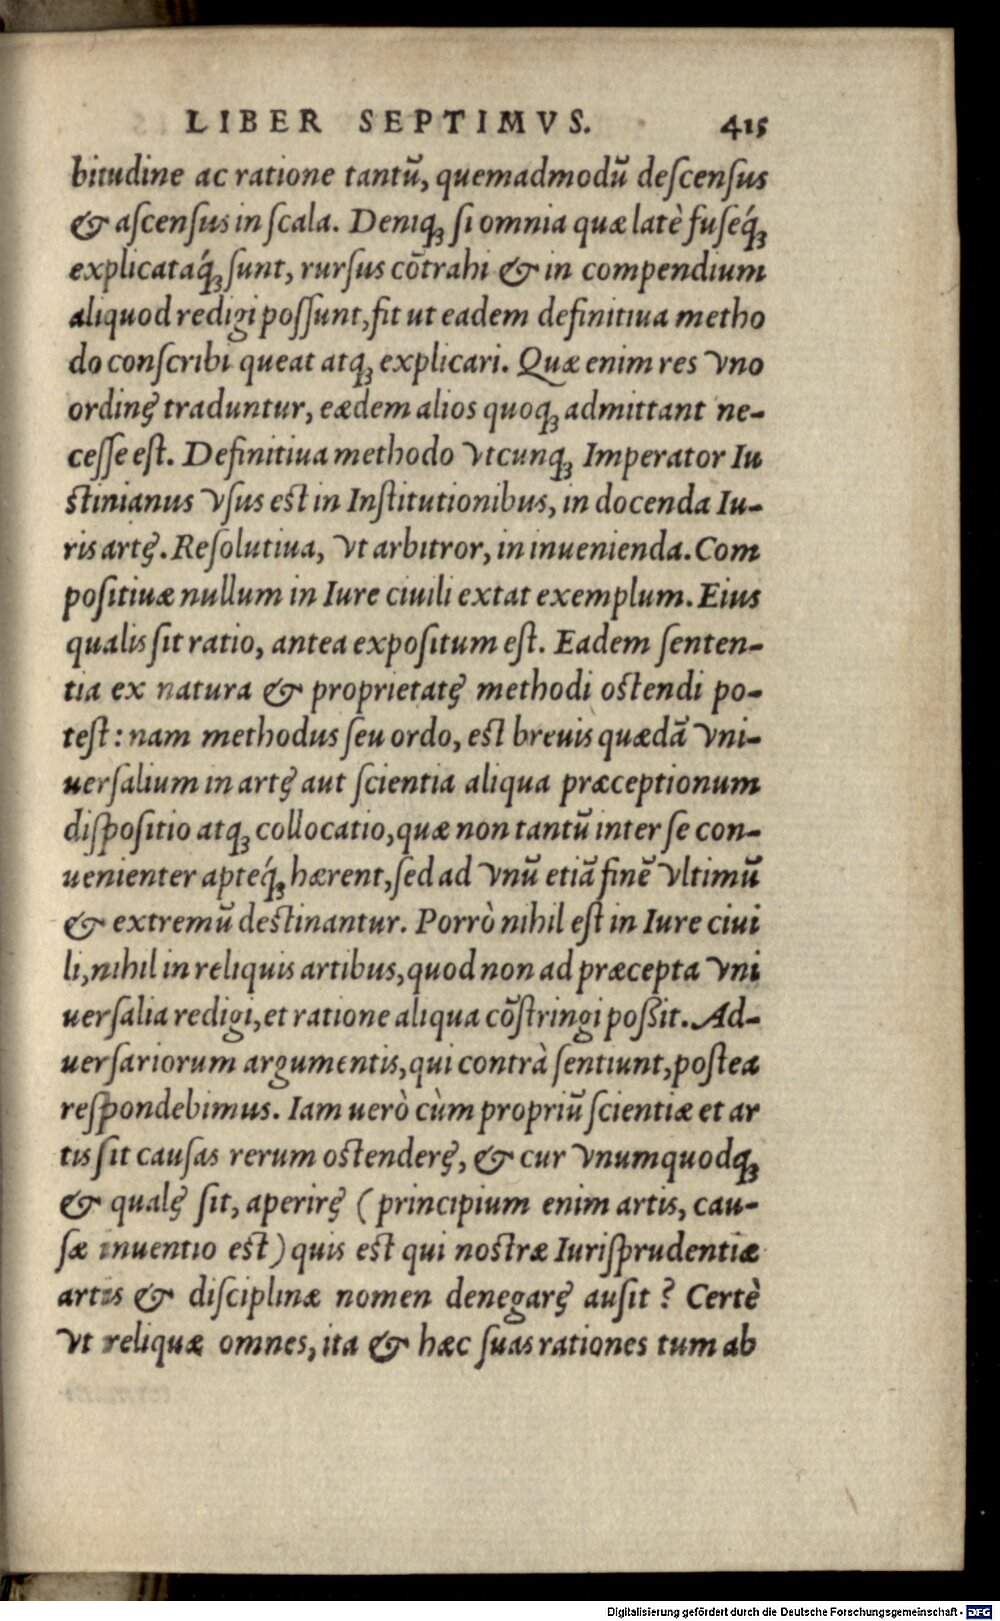 LIBER SEPTIMVS. 415
bitudine ac ratione tantũ, quemadmodũ deſcenſus
& aſcenſus in ſcala. Deniqꝫ ſi omnia quæ latè fuſeq́ꝫ
explicataq́ꝫ ſunt, rurſus cõtrahi & in compendium
aliquod redigi poſſunt, fit ut eadem definitiua metho
do conſcribi queat atqꝫ explicari. Quæ enim res vno
ordine traduntur, eædem alios quoqꝫ admittant ne-
ceſſe eſt. Definitiua methodo vtcunqꝫ Imperator Iu
ſtinianus vſus eſt in Inſtitutionibus, in docenda Iu-
ris arte. Reſolutiua, vt arbitror, in inuenienda. Com
poſitiuæ nullum in Iure ciuili extat exemplum. Eius
qualis ſit ratio, antea expoſitum eſt. Eadem ſenten-
tia ex natura & proprietate methodi oſtendi po-
teſt: nam methodus ſeu ordo, eſt breuis quædã vni-
uerſalium in arte aut ſcientia aliqua præceptionum
diſpoſitio atqꝫ collocatio, quæ non tantũ inter ſe con-
uenienter apteq́ꝫ hærent, ſed ad vnũ etiã finẽ vltimũ
& extremũ deſtinantur. Porrò nihil eſt in Iure ciui
li, nihil in reliquis artibus, quod non ad præcepta vni
uerſalia redigi, et ratione aliqua cõſtringi poßit. Ad-
uerſariorum argumentis, qui contrà ſentiunt, poſtea
reſpondebimus. Iam uerò cùm propriũ ſcientiæ et ar
tis ſit cauſas rerum oſtendere, & cur vnumquodqꝫ
& quale ſit, aperire (principium enim artis, cau-
ſæ inuentio eſt) quis eſt qui noſtræ Iuriſprudentiæ
artis & diſciplinæ nomen denegare auſit? Certè
vt reliquæ omnes, ita & hæc ſuas rationes tum ab
Digitalisierung gefördert durch die Deutsche Forschungsgemeinschaft - DFG